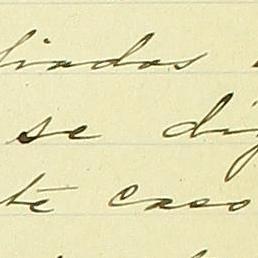 liadas
se di
te caso